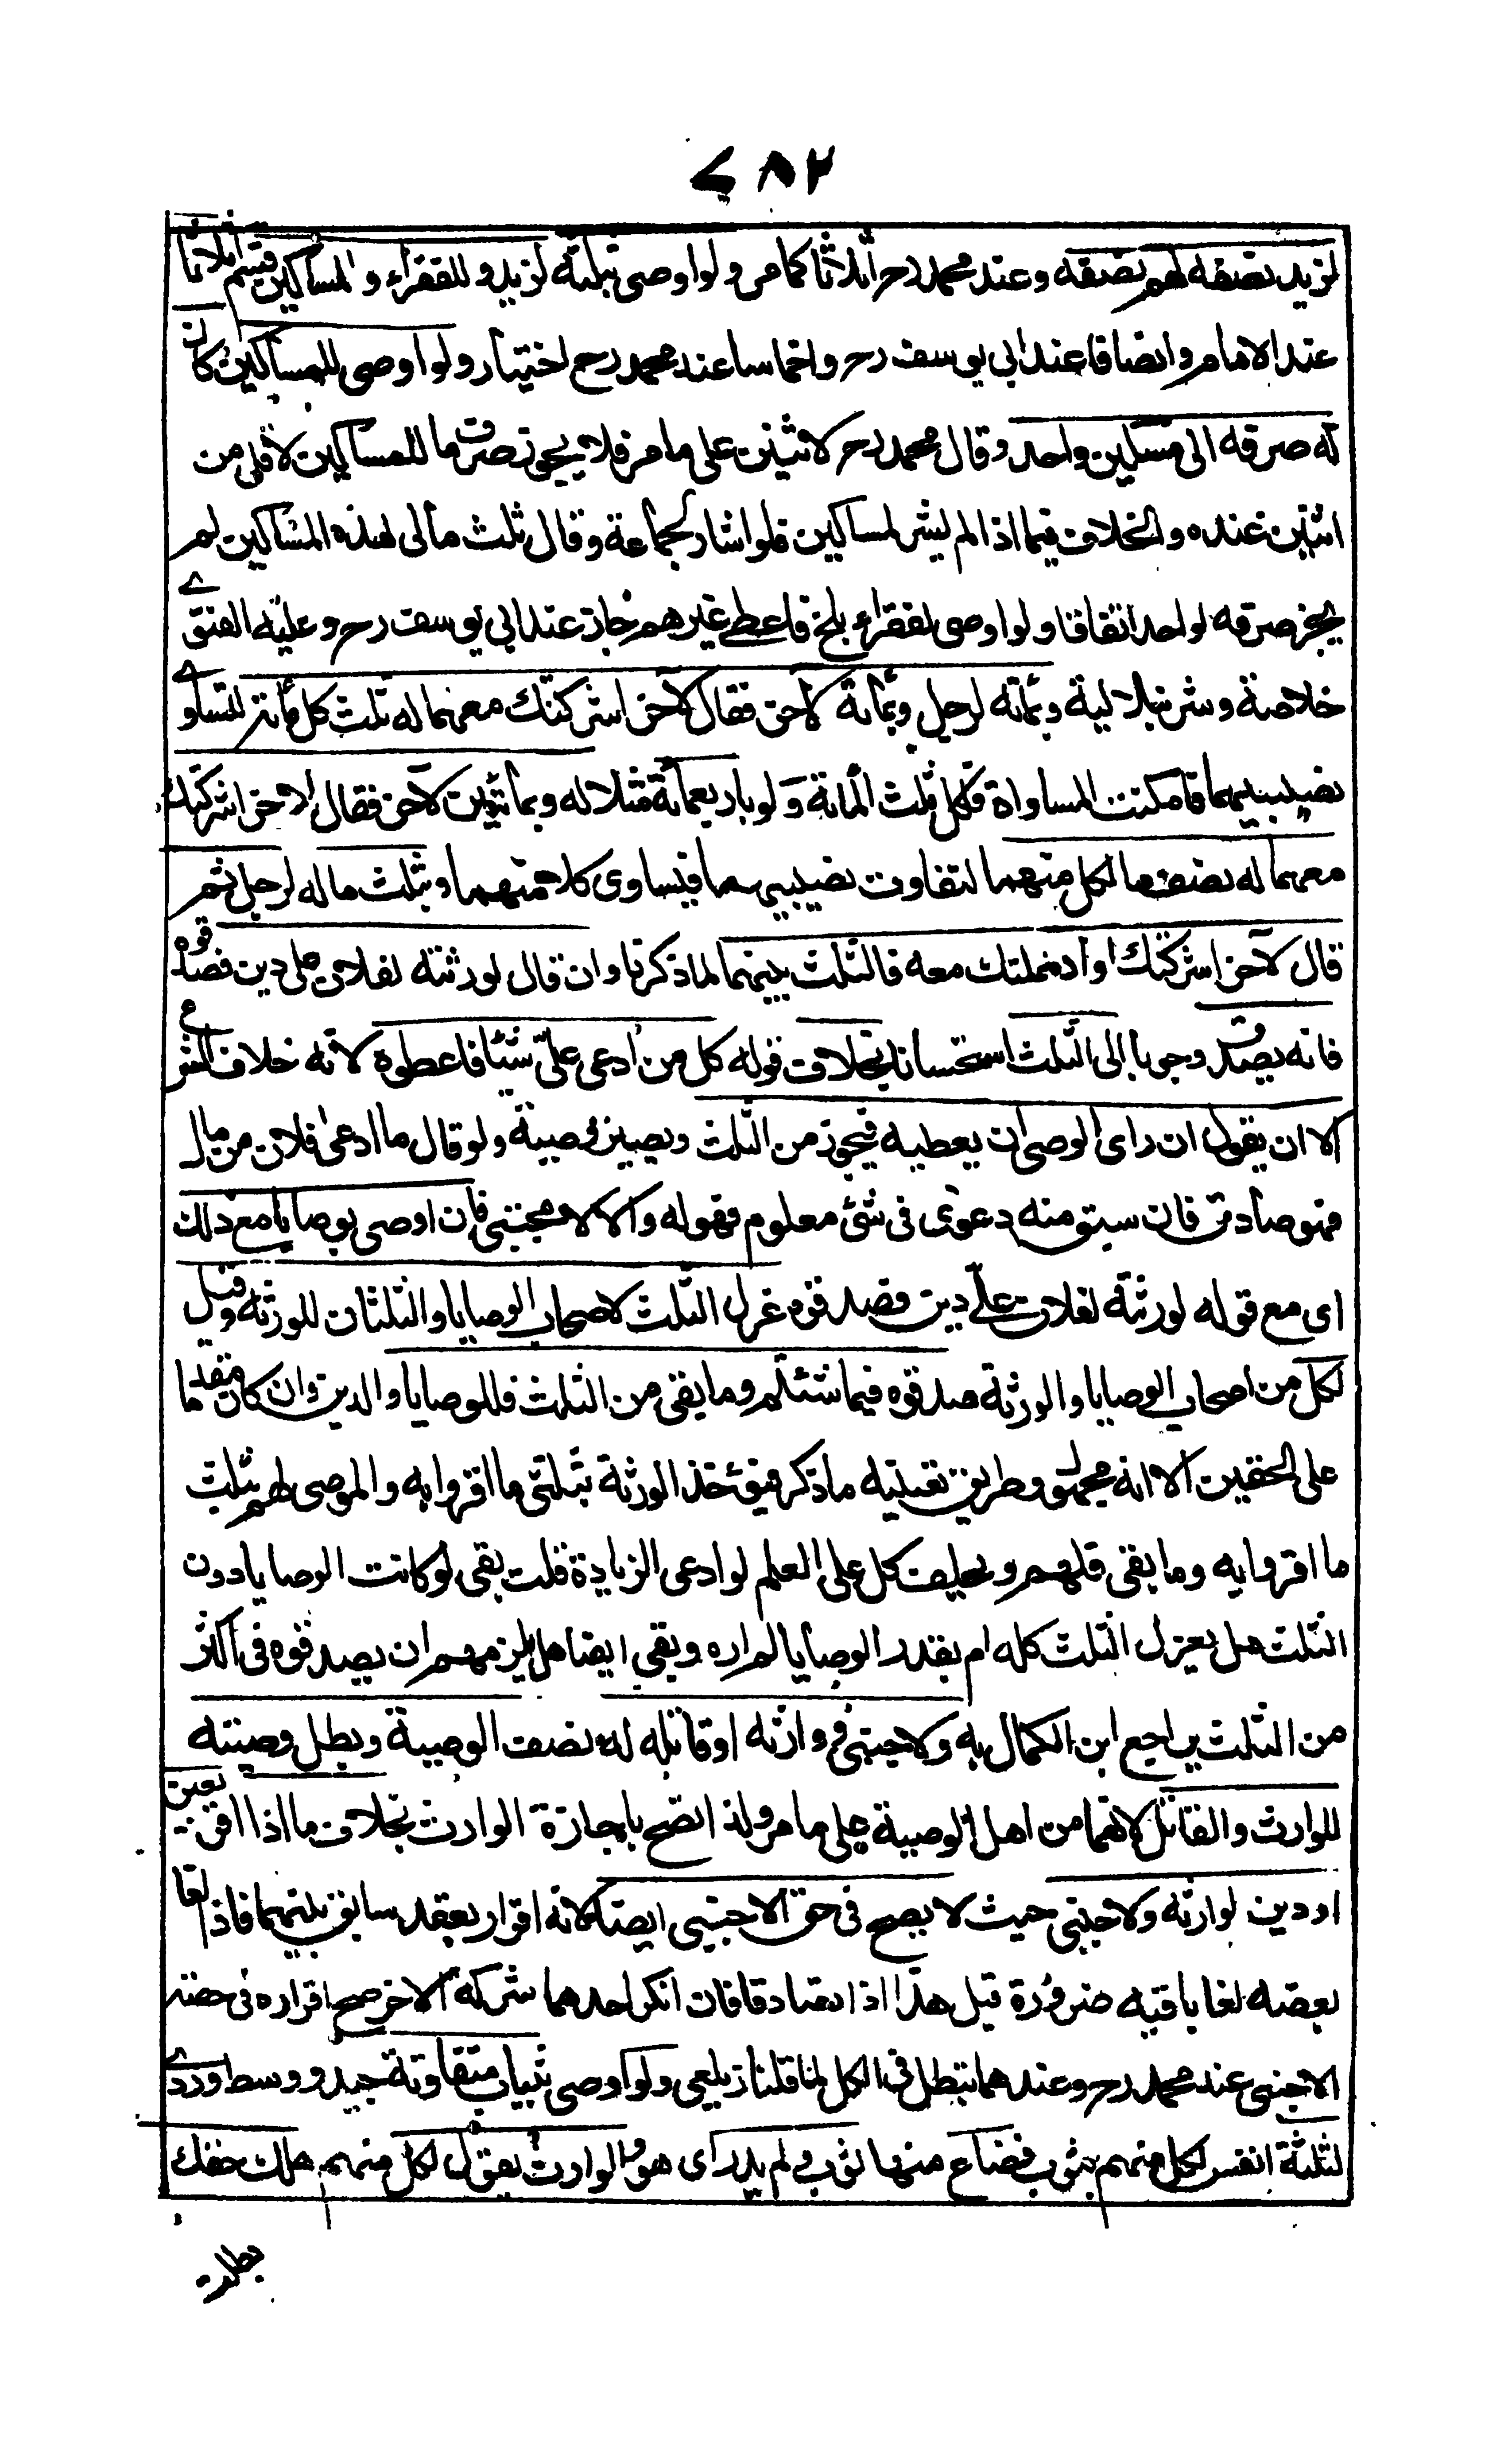 ٧٨٢
لزيد نصفه لهم نصفه وعند محمد رح اثلاثا كما مر ولو اوصى بثلثه لزيد وللفقراء والمساكين قسم اثلاثا
عند الامام وانصافا عند ابي يوسف رح واخماسا عند محمد رح اختيار ولو اوصى للمساكين كان
له صرفه الى مسكين واحد وقال محمد رح لاثنين على ما مر فلا يجوز صرف ما للمساكين لاقل من
اثنين عنده والخلاف فيما اذا لم يشر لمساكين فلو اشار لجماعة وقال ثلث مالى لهذه المساكين لم
يجز صرفه لواحد اتفاقا ولو اوصى لفقراء بلخ فاعطى غيرهم جاز عند ابي يوسف رح وعليه الفتوى
خلاصة وشرنبلالية وبمائة لرجل وبمائة لآخر فقال لآخر اشركتك معهما له ثلث كل مائة لتساوى
نصيبيهما فامكنت المساواة فلكل ثلث المائة ولو باربعمائة مثلا له وبمائتين لآخر فقال لآخر اشركتك
معهما له نصف ما لكل منهما لتفاوت نصيبيهما فيساوى كلا منهما وبثلث ماله لرجل ثم
قال لآخر اشركتك او ادخلتك معه فالثلث بينهما لما ذكرنا وان قال لورثته لفلان على دين فصدقوه
فانه يصدق وجوبا الى الثلث استحسانا بخلاف قوله كل من ادعى علىّ شئا فاعطوه لانه خلاف الشرع
الا ان يقول ان راى الوصى ان يعطيه فيجوز من الثلث ويصير وصية ولو قال ما ادعى فلان من مال
فهو صادق فان سبق منه دعوى فى شئ معلوم فهو له والا لا مجتبى فان اوصى بوصايا مع ذلك
اى مع قوله لورثته لفلان علي دين فصدقوه عزل الثلث لاصحاب الوصايا والثلثان للورثة وقيل
لكل من اصحاب الوصايا والورثة صدقوه فيما شئتم وما بقى من الثلث فللوصايا والدين وان كان مقدما
على الحقين الا انه مجهول وطريق تعيينه ما ذكر فيؤخذ الورثة بثلثى ما اقروا به والموصى لهم بثلث
ما اقروا به وما بقى فلهم ويحلف كل على العلم لو ادعى الزيادة قلت بقى لو كانت الوصايا دون
الثلث هل يعزل الثلث كله ام بقدر الوصايا لم اره وبقى ايضا هل يلزمهم ان يصدقوه فى اكثر
من الثلث يراجع ابن الكمال به ولاجنبى ووارثه او قاتله له نصف الوصية وبطل وصيته
للوارث والقاتل لانهما من اهل الوصية على ما مر ولذا تصح باجازة الوارث بخلاف ما اذا اقر بعين
او دين لوارثه ولاجنبى حيث لا يصح فى حق الاجنبى ايضا لانه اقرار بعقد سابق بينهما فاذا لغا
بعضه لغا باقيه ضرورة قيل هذا اذا تصادقا فان انكر احدهما شركة الاخر صح اقراره فى حصة
الاجنبى عند محمد رح وعندهما تبطل فى الكل لما قلنا زيلعى ولو اوصى بثياب متفاوتة جيد ووسط وردى
لثلثة انفس لكل منهم بثوب فضاع منها ثوب ولم يدر اى هو والوارث يقول لكل منهم هلك حقك
بطلت